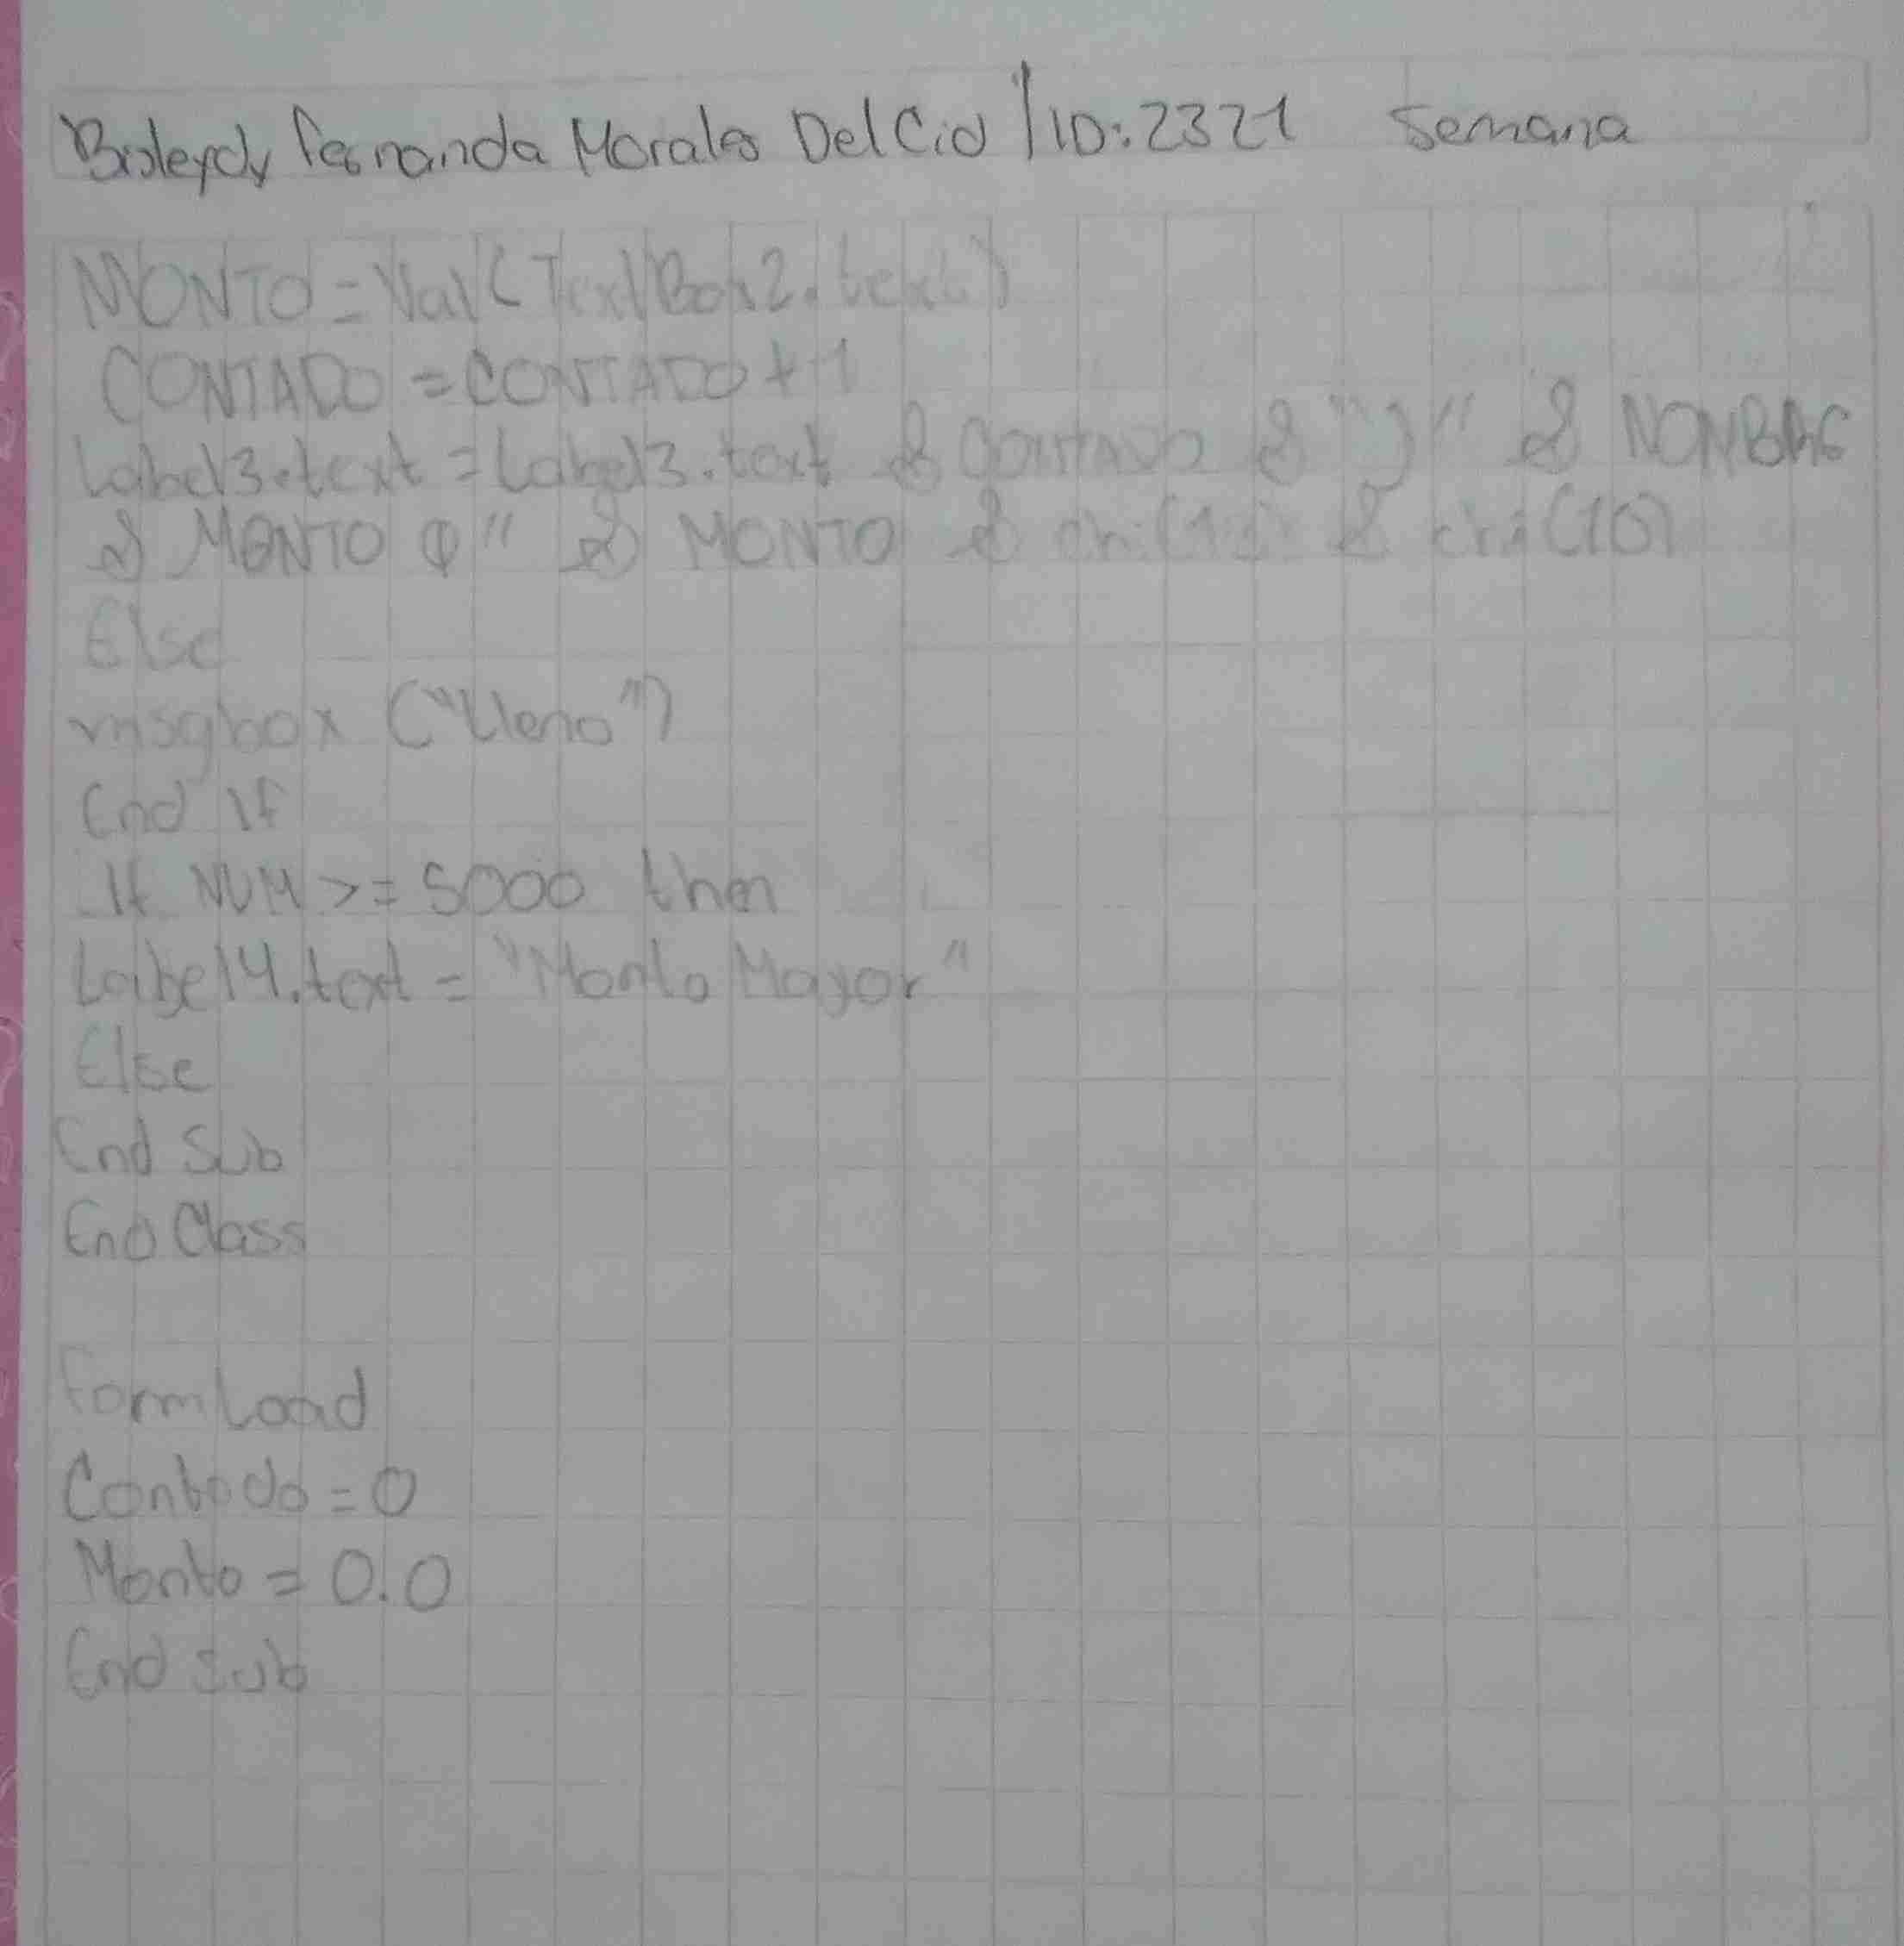 Fernanda Morales Del Cid | ID: 2321 Semana
MONTO = Val (TextBox2.text)
CONTADO = CONTADO + 1
Label3.text = Label3.text & CONTADO & ")" &
& MONTO Q" & MONTO & & (10)
Else
msgbox ("lleno")
End If
If NUM >= 5000 then
Label4.text = "Monto Mayor"
Else
End Sub
End Class
Form Load
Contado = 0
Monto = 0.0
End sub